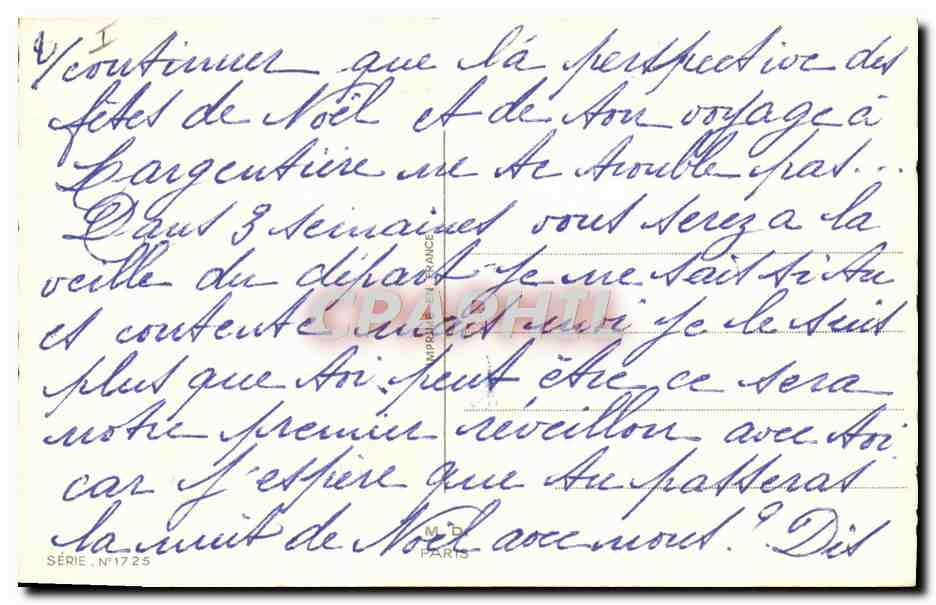 I
continuer que la perspective des
fêtes de Noël et de ton voyage à
Largentière ne te trouble pas...
Dans 3 semaines vous serez a la
veille du départ je ne sait si tu
es contente mais moi je le suis
plus que toi peut être ce sera
notre premier réveillon avec toi
car j'espère que tu passeras
la nuit de Noël avec nous? Dis
IMPRIMÉ EN FRANCE
CPAPHIL
M. D.
PARIS
SÉRIE. N° 1725